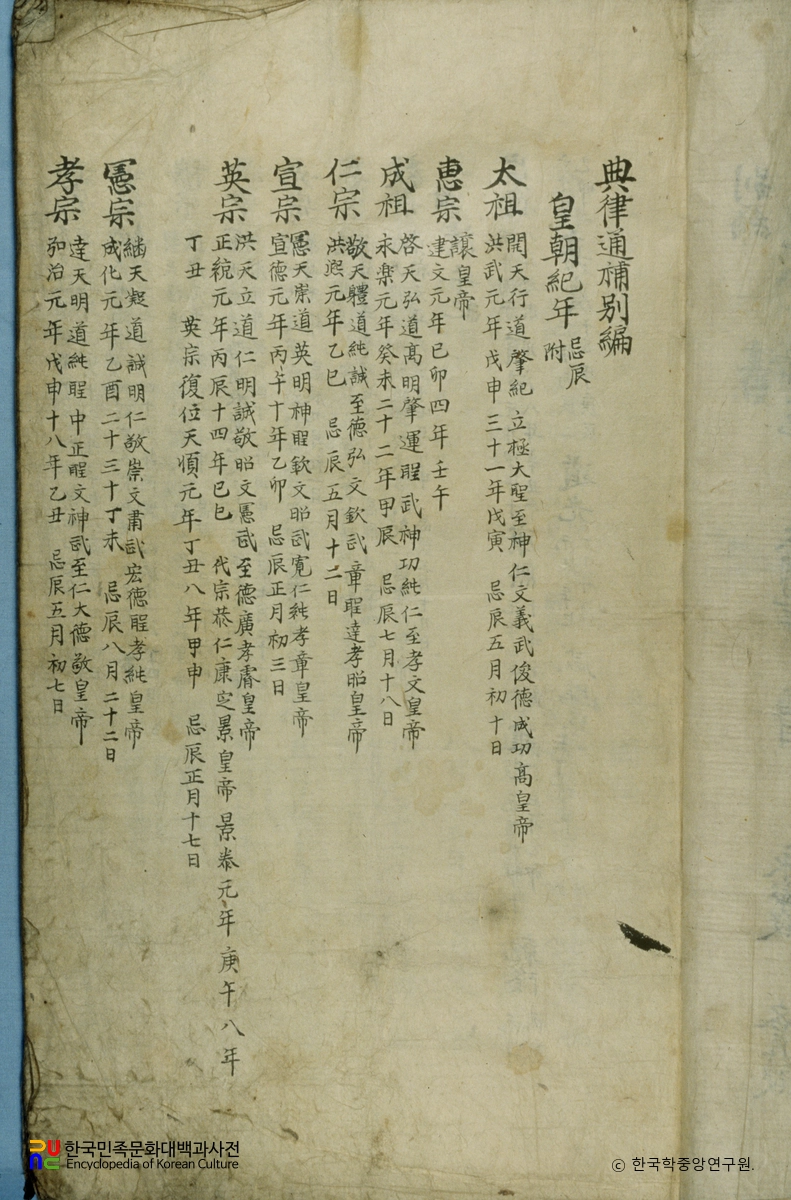 典律通補別編
皇朝紀年 忌辰附
太祖 開天行道肇紀立極大聖至神仁文義武俊德成功高皇帝
洪武元年戊申三十一年戊寅 忌辰五月初十日
惠宗 讓皇帝
建文元年己卯四年壬午
成祖 啓天弘道高明肇運聖武神功純仁至孝文皇帝
永樂元年癸未二十二年甲辰 忌辰七月十八日
仁宗 敬天體道純誠至德弘文欽武章聖達孝昭皇帝
洪熙元年乙巳 忌辰五月十二日
宣宗 憲天崇道英明神聖欽文昭武寬仁純孝章皇帝
宣德元年丙午十年乙卯 忌辰正月初三日
英宗 洪天立道仁明誠敬昭文憲武至德廣孝睿皇帝
正統元年丙辰十四年己巳 代宗恭仁康定景皇帝 景泰元年庚午八年
丁丑 英宗復位天順元年丁丑八年甲申 忌辰正月十七日
憲宗 繼天凝道誠明仁敬崇文肅武宏德聖孝純皇帝
成化元年乙酉二十三十丁未 忌辰八月二十二日
孝宗 達天明道純聖中正聖文神武至仁大德敬皇帝
弘治元年戊申十八年乙丑 忌辰五月初七日
한국민족문화대백과사전
Encyclopedia of Korean Culture
ⓒ 한국학중앙연구원.